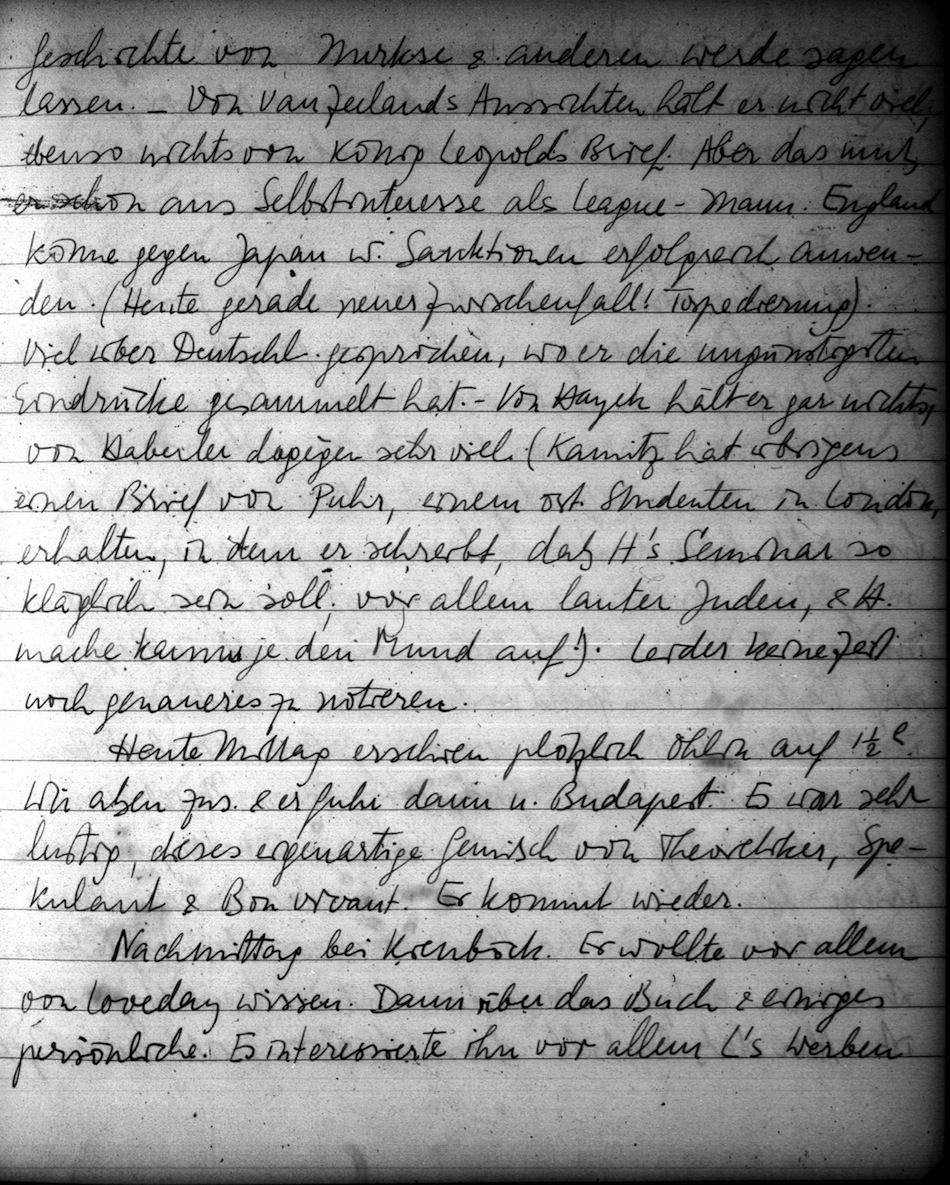 Geschichte von Nurkse & anderen werde sagen
lassen. – Von Van Zeelands Aussichten hält er nicht viel,
ebenso nichts von König Leopolds Brief. Aber das muß
er schon aus Selbstinteresse als League-Mann. England
könne gegen Japan w. Sanktionen erfolgreich anwen-
den. (Heute gerade neuer Zwischenfall! Torpedierung).
Viel über Deutschl. gesprochen, wo er die ungünstigsten
Eindrücke gesammelt hat. – Von Hayek hält er gar nichts,
von Haberler dagegen sehr viel. (Kamitz hat übrigens
einen Brief von Puhr, einem öst. Studenten in London,
erhalten, in dem er schreibt, daß H's Seminar so
kläglich sein soll, vor allem lauter Juden, & H.
mache kaum je den Mund auf!). Leider keine Zeit
noch genaueres zu notieren.
Heute Mittag erschien plötzlich Ohlin auf 1½ h.
Wir aßen zus. & er fuhr dann n. Budapest. Es war sehr
lustig, dieses eigenartige Gemisch von Theoretiker, Spe-
kulant & Bon vivant. Er kommt wieder.
Nachmittag bei Kienböck. Er wollte vor allem
von Loveday wissen. Dann über das Buch & einiges
persönliche. Es interessierte ihn vor allem L's Werben